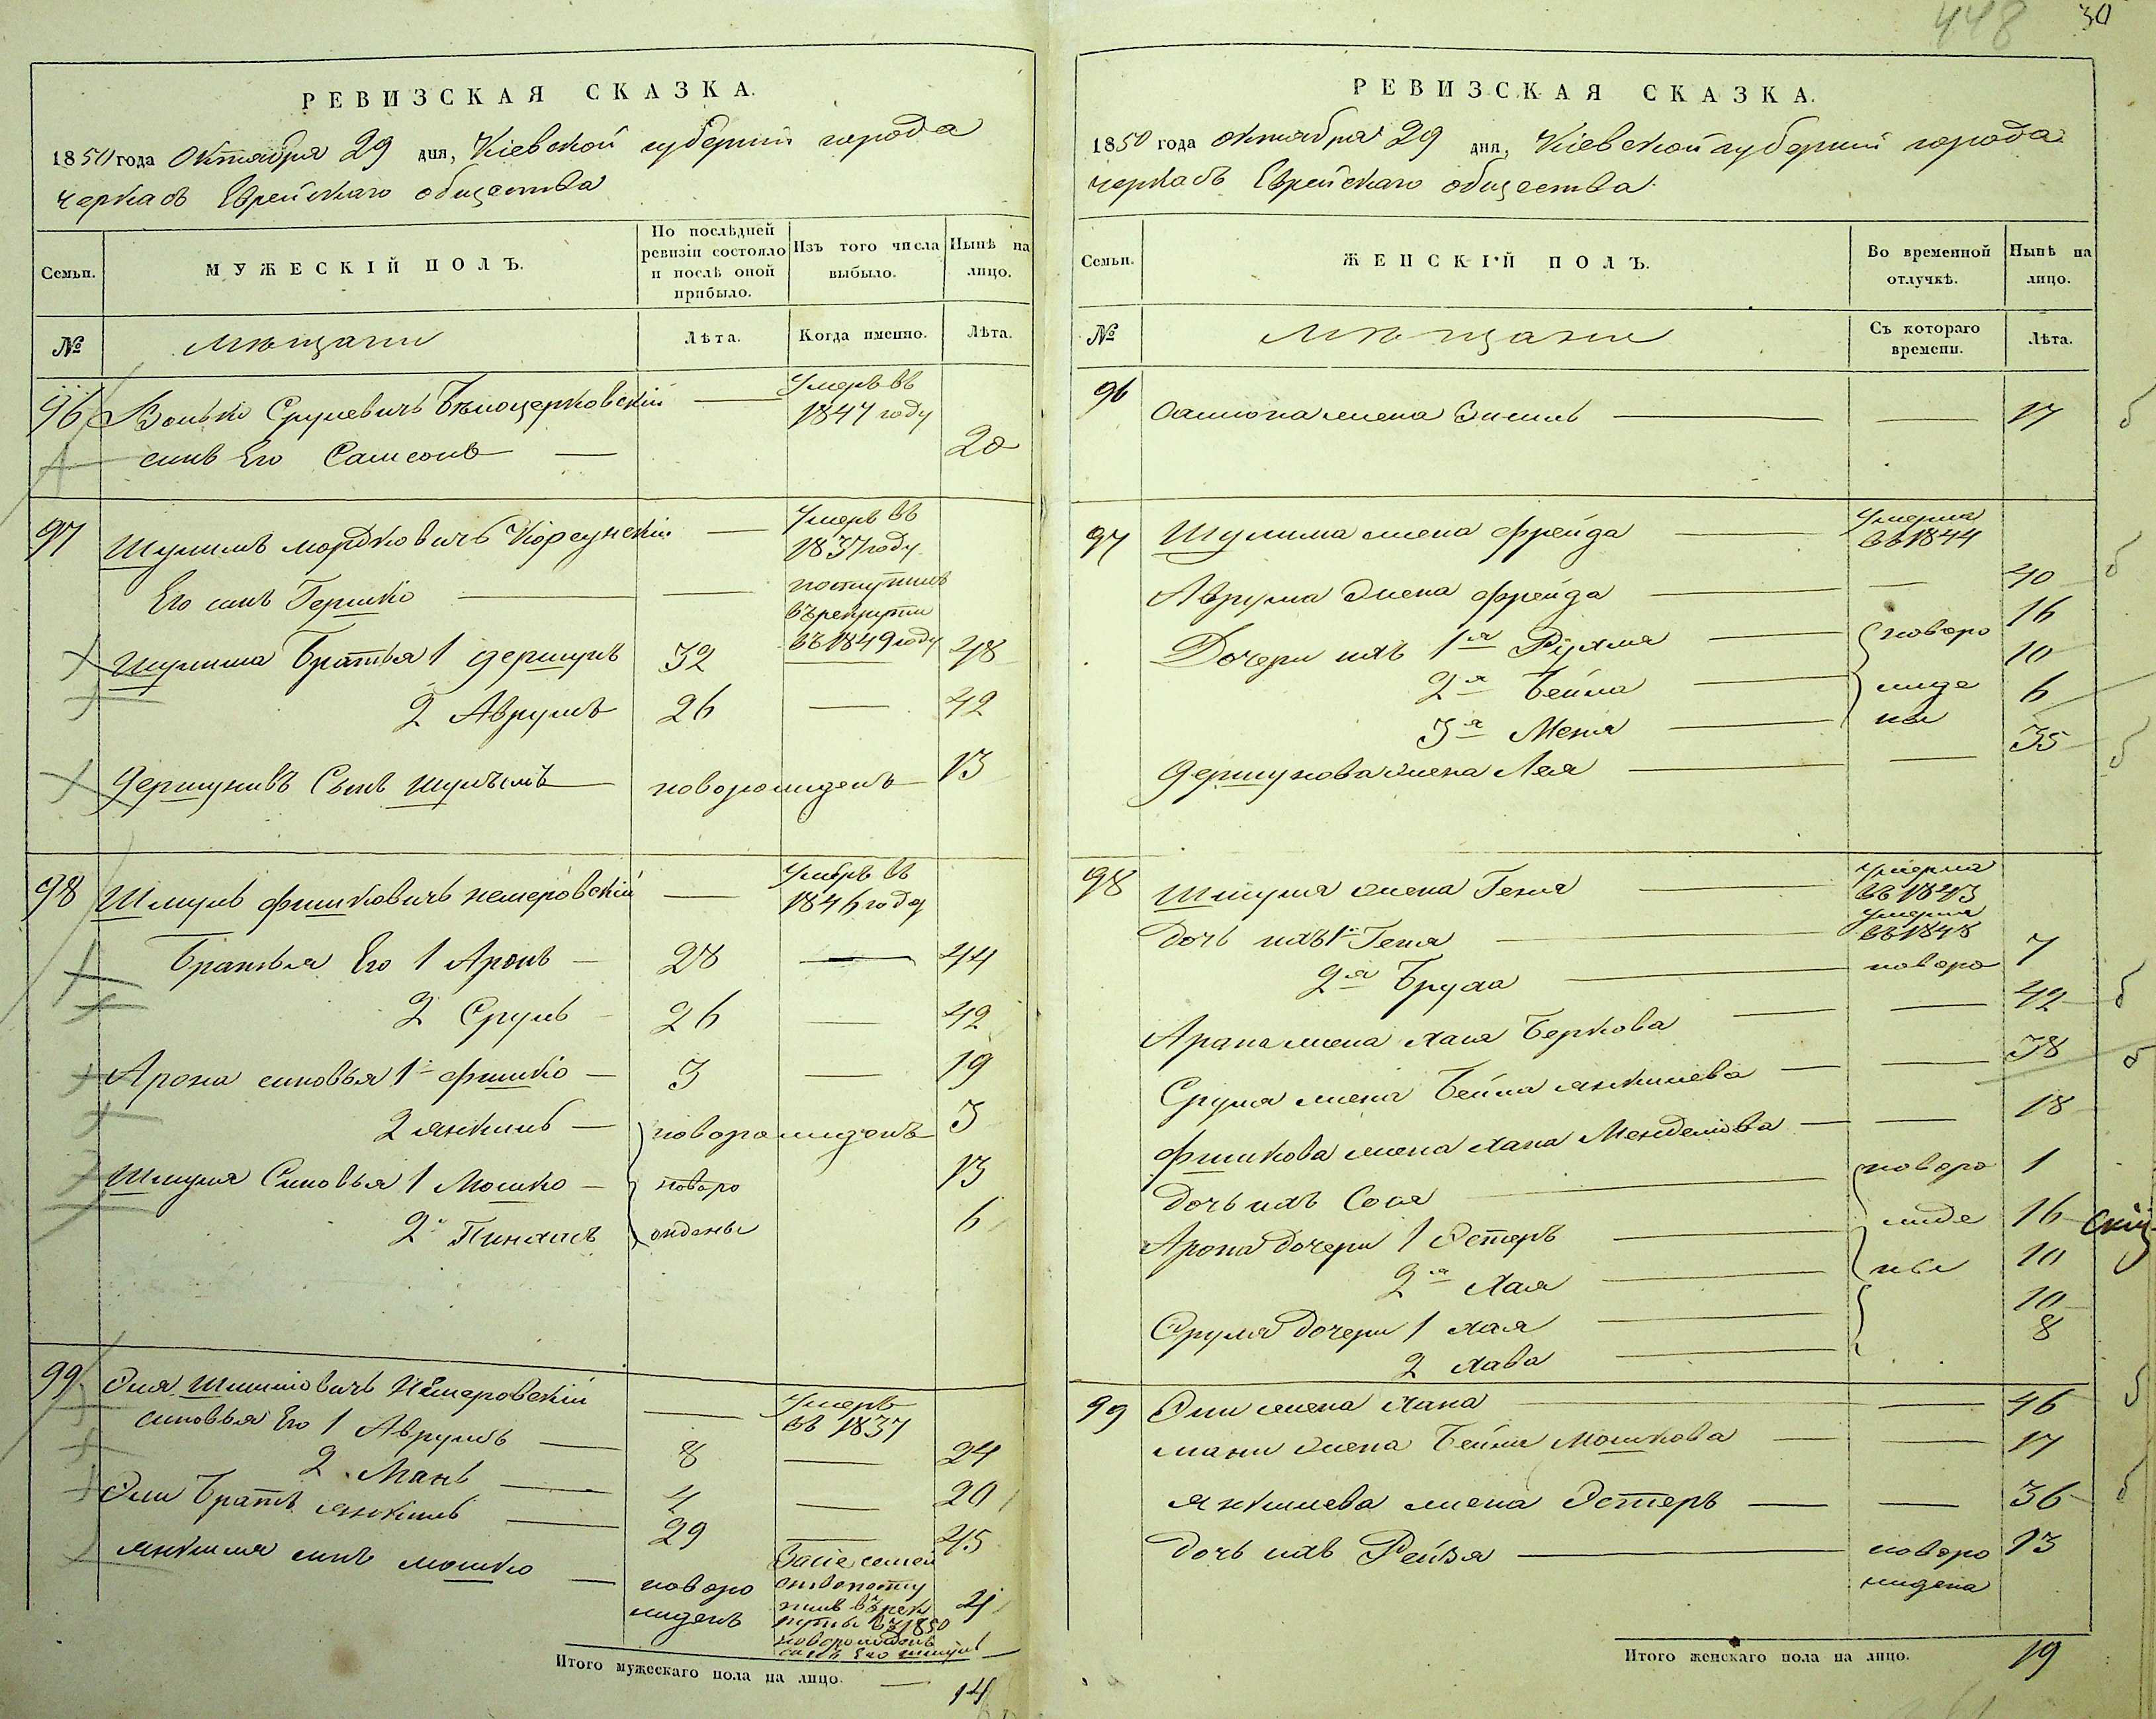 РЕВИЗСКАЯ СКАЗКА.
1850 года Октября 29 дня, Кіевской губерніи города
черкасъ Еврейскаго общества
Семьи.
МУЖЕСКІЙ ПОЛЪ.
По послѣдней ревизіи состояло и послѣ оной прибыло.
Изъ того числа выбыло.
Нынѣ на лицо.
№
мѣщане
Лѣта.
Когда именно.
Лѣта.
96 Волько Срулевичъ Бѣлоцерковскій — Умеръ въ 1847 году
сынъ Его Самсонъ — 20
97 Шулимъ мордковичъ Корсунскій — Умеръ въ 1837 году
Его сынъ Гершко — — поступилъ въ рекруты въ 1849 году
Шулима Братья 1 Гершунъ 32 — 48
2 Аврумъ 26 — 42
Гершуновъ Сынъ Шулымъ — новорожденъ 13
98 Шмуль фишковичъ немеровскій — Умеръ въ 1846 году
Братья Его 1 Аронъ — 28 — 44
2 Сруль — 26 — 42
Арона сыновья 1й фишко — 3 — 19
2 янкель — новорожденъ 3
Шмуля Сыновья 1 Мошко — новоро 13
2й Пинхасъ ждены 6
99 Эля Шмулiовичъ Немеровскій — Умеръ въ 1837
сыновья Его 1 Аврумъ — 8 — 24
2 Манъ — 4 — 20
Эли Братъ янкель — 29 — 45
янкеля сынъ мошко — новорожденъ 4
въ 1850
новорожденъ
сынъ Его шмуль —
Итого мужескаго пола на лицо. — 14
448
30
РЕВИЗСКАЯ СКАЗКА.
1850 года октября 29 дня, Кіевской губерніи города
черкасъ Еврейскаго общества.
Семьи.
ЖЕНСКІЙ ПОЛЪ.
Во временной отлучкѣ.
Нынѣ на лицо.
№
мѣщане
Съ котораго времени.
Лѣта.
96 жена — — 17
97 Шулима жена фрейда — Умерла въ 1844
Аврума жена фрейда — — 40
Дочери ихъ 1я Рухля — новоро 16
2я Бейла — жде 10
3я Меня — ны 6
Гершунова жена Лея — — 35
98 Шмуля жена Геня — Умерла въ 1843
дочь ихъ 1я Геня — умерла въ 1848
2я Бруха — новоро 7
Арона жена хая Беркова — — 42
Сруля жена Бейла янкелева — — 38
фишкова жена хана Менделiова — — 18
дочь ихъ Сося — новоро 1
Арона дочери 1 Эстеръ — жде 16
2я Хая — ны 10
Сруля дочери 1 хая — 10
2 хава — 8
99 Эли жена хана — — 46
мани жена Бейла Мошкова — — 17
янкелева жена Эстеръ — — 36
дочь ихъ Рейзя — новорождена 13
Итого женскаго пола на лицо. 19